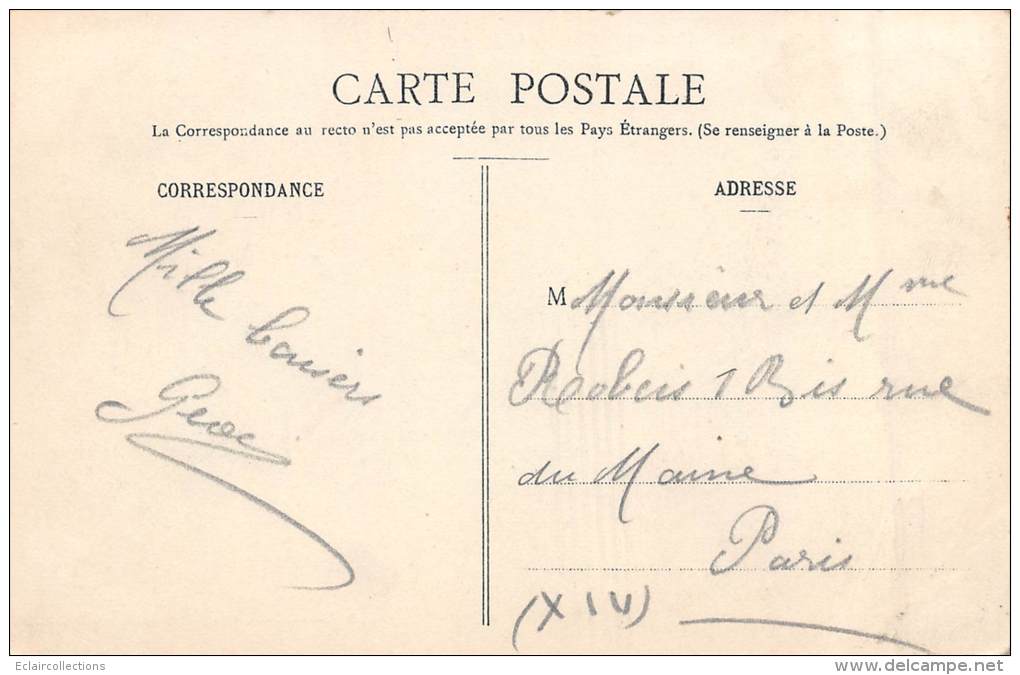 CARTE POSTALE
La Correspondance au recto n'est pas acceptée par tous les Pays Étrangers. (Se renseigner à la Poste.)
CORRESPONDANCE
Mille baisers
ADRESSE
M Monsieur et Mme
1 Bis rue
du Maine
Paris
(XIV)
Eclaircollections
www.delcampe.net